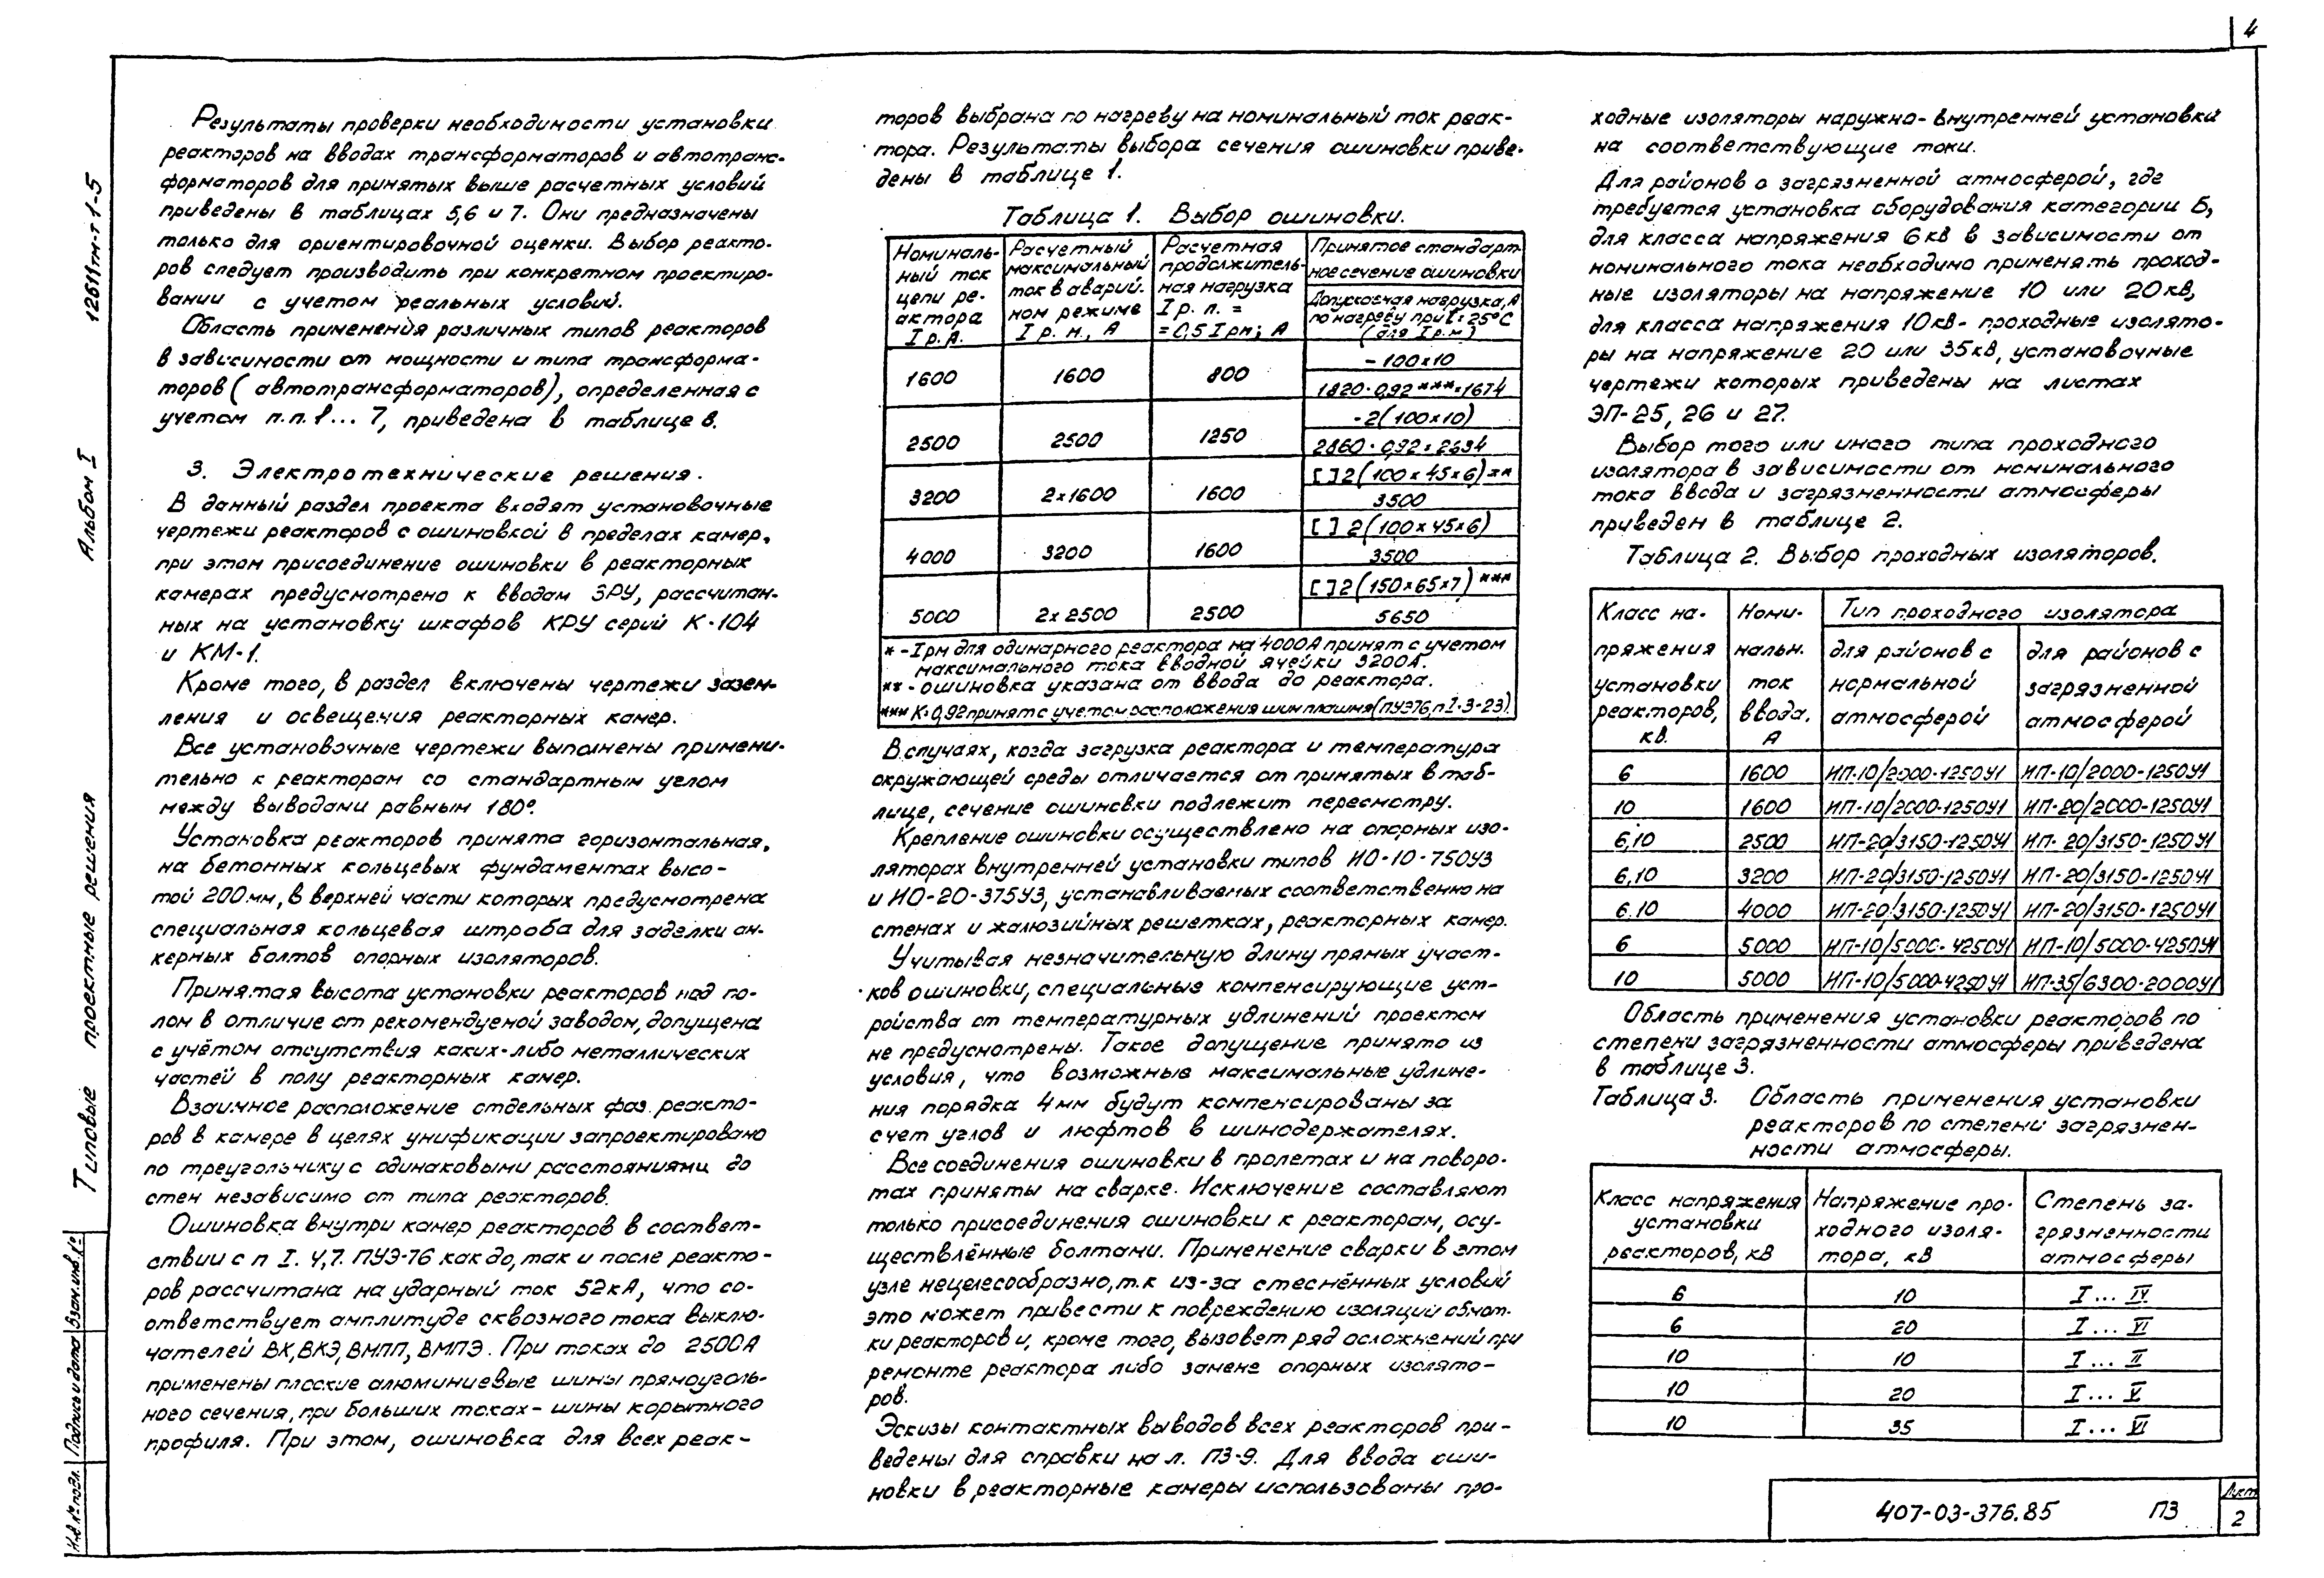 4
Результаты проверки необходимости установки
реакторов на вводах трансформаторов и автотранс-
форматоров для принятых выше расчетных условий
приведены в таблицах 5,6 и 7. Они предназначены
только для ориентировочной оценки. Выбор реакто-
ров следует производить при конкретном проектиро-
вании с учетом реальных условий.
Область применения различных типов реакторов
в зависимости от мощности и типа трансформа-
торов (автотрансформаторов), определенная с
учетом п.п. 1... 7, приведена в таблице 8.
3. Электротехнические решения.
В данный раздел проекта входят установочные
чертежи реакторов с ошиновкой в пределах камер,
при этом присоединение ошиновки в реакторных
камерах предусмотрено к вводам ЗРУ, рассчитан-
ных на установку шкафов КРУ серий К-104
и КМ-1.
Кроме того, в раздел включены чертежи зазем-
ления и освещения реакторных камер.
Все установочные чертежи выполнены примени-
тельно к реакторам со стандартным углом
между выводами равным 180°.
Установка реакторов принята горизонтальная,
на бетонных кольцевых фундаментах высо-
той 200 мм, в верхней части которых предусмотрена
специальная кольцевая штроба для заделки ан-
керных болтов опорных изоляторов.
Принятая высота установки реакторов над по-
лом в отличие от рекомендуемой заводом, допущена
с учётом отсутствия каких-либо металлических
частей в полу реакторных камер.
Взаимное расположение отдельных фаз реакто-
ров в камере в целях унификации запроектировано
по треугольнику с одинаковыми расстояниями до
стен независимо от типа реакторов.
Ошиновка внутри камер реакторов в соответ-
ствии с п I. 4,7. ПУЭ-76 как до, так и после реакто-
ров рассчитана на ударный ток 52кА, что со-
ответствует амплитуде сквозного тока выклю-
чателей ВК, ВКЭ, ВМПП, ВМПЭ. При токах до 2500А
применены плоские алюминиевые шины прямоуголь-
ного сечения, при больших токах - шины корытного
профиля. При этом, ошиновка для всех реак-
торов выбрана по нагреву на номинальный ток реак-
тора. Результаты выбора сечения ошиновки приве-
дены в таблице 1.
Таблица 1. Выбор ошиновки.
Номиналь-
ный ток
цепи ре-
актора
I р. А.
Расчетный
максимальный
ток в аварий.
ном режиме
I р. м., А
Расчетная
продолжитель-
ная нагрузка
I р. п. =
=0,5 I рм; А
Принятое стандарт-
ное сечение ошиновки
Допускаемая нагрузка, А
по нагреву при t=25°С
(для I р.м)
1600 1600 800 - 100х10
1820·0,92***=1674
2500 2500 1250 -2(100х10)
2860·0,92=2634
3200 2х1600 1600 [ ] 2(100х45х6)**
3500
4000 3200 1600 [ ] 2(100х45х6)
3500
5000 2х2500 2500 [ ] 2(150х65х7)***
5650
* - Iрм для одинарного реактора на 4000А принят с учетом
максимального тока вводной ячейки 3200А.
** - ошиновка указана от ввода до реактора.
*** К=0,92 принят с учетом расположения шин плашмя (ПУЭ76, п I-3-23).
В случаях, когда загрузка реактора и температура
окружающей среды отличается от принятых в таб-
лице, сечение ошиновки подлежит пересмотру.
Крепление ошиновки осуществлено на опорных изо-
ляторах внутренней установки типов ИО-10-750У3
и ИО-20-375У3, устанавливаемых соответственно на
стенах и жалюзийных решетках, реакторных камер.
Учитывая незначительную длину прямых участ-
ков ошиновки, специальные компенсирующие уст-
ройства от температурных удлинений проектом
не предусмотрены. Такое допущение принято из
условия, что возможные максимальные удлине-
ния порядка 4мм будут компенсированы за
счет углов и люфтов в шинодержателях.
Все соединения ошиновки в пролетах и на поворо-
тах приняты на сварке. Исключение составляют
только присоединения ошиновки к реакторам, осу-
ществлённые болтами. Применение сварки в этом
узле нецелесообразно, т.к из-за стеснённых условий
это может привести к повреждению изоляции обмот-
ки реакторов и, кроме того, вызовет ряд осложнений при
ремонте реактора либо замене опорных изолято-
ров.
Эскизы контактных выводов всех реакторов при-
ведены для справки на л. ПЗ-9. Для ввода оши-
новки в реакторные камеры использованы про-
ходные изоляторы наружно-внутренней установки
на соответствующие токи.
Для районов с загрязненной атмосферой, где
требуется установка оборудования категории Б,
для класса напряжения 6кв в зависимости от
номинального тока необходимо применять проход-
ные изоляторы на напряжение 10 или 20кв,
для класса напряжения 10кв - проходные изолято-
ры на напряжение 20 или 35кв, установочные
чертежи которых приведены на листах
ЭП-25, 26 и 27.
Выбор того или иного типа проходного
изолятора в зависимости от номинального
тока ввода и загрязненности атмосферы
приведен в таблице 2.
Таблица 2. Выбор проходных изоляторов.
Класс на-
пряжения
установки
реакторов,
кв.
Номи-
нальн.
ток
ввода,
А
Тип проходного изолятора
для районов с
нормальной
атмосферой
для районов с
загрязненной
атмосферой
6 1600 ИП-10/2000-1250У1 ИП-10/2000-1250У1
10 1600 ИП-10/2000-1250У1 ИП-20/2000-1250У1
6,10 2500 ИП-20/3150-1250У1 ИП-20/3150-1250У1
6,10 3200 ИП-20/3150-1250У1 ИП-20/3150-1250У1
6,10 4000 ИП-20/3150-1250У1 ИП-20/3150-1250У1
6 5000 ИП-10/5000-4250У1 ИП-10/5000-4250У1
10 5000 ИП-10/5000-4250У1 ИП-35/6300-2000У1
Область применения установки реакторов по
степени загрязненности атмосферы приведена
в таблице 3.
Таблица 3. Область применения установки
реакторов по степени загрязнен-
ности атмосферы.
Класс напряжения
установки
реакторов, кВ
Напряжение про-
ходного изоля-
тора, кВ
Степень за-
грязненности
атмосферы
6 10 I ... IV
6 20 I ... VI
10 10 I ... II
10 20 I ... V
10 35 I ... VI
407-03-376.85 ПЗ
Лист
2
12611тм-т 1-5
Альбом I
Типовые проектные решения
Взам.инв.№
Подпись и дата
Инв.№ подл.